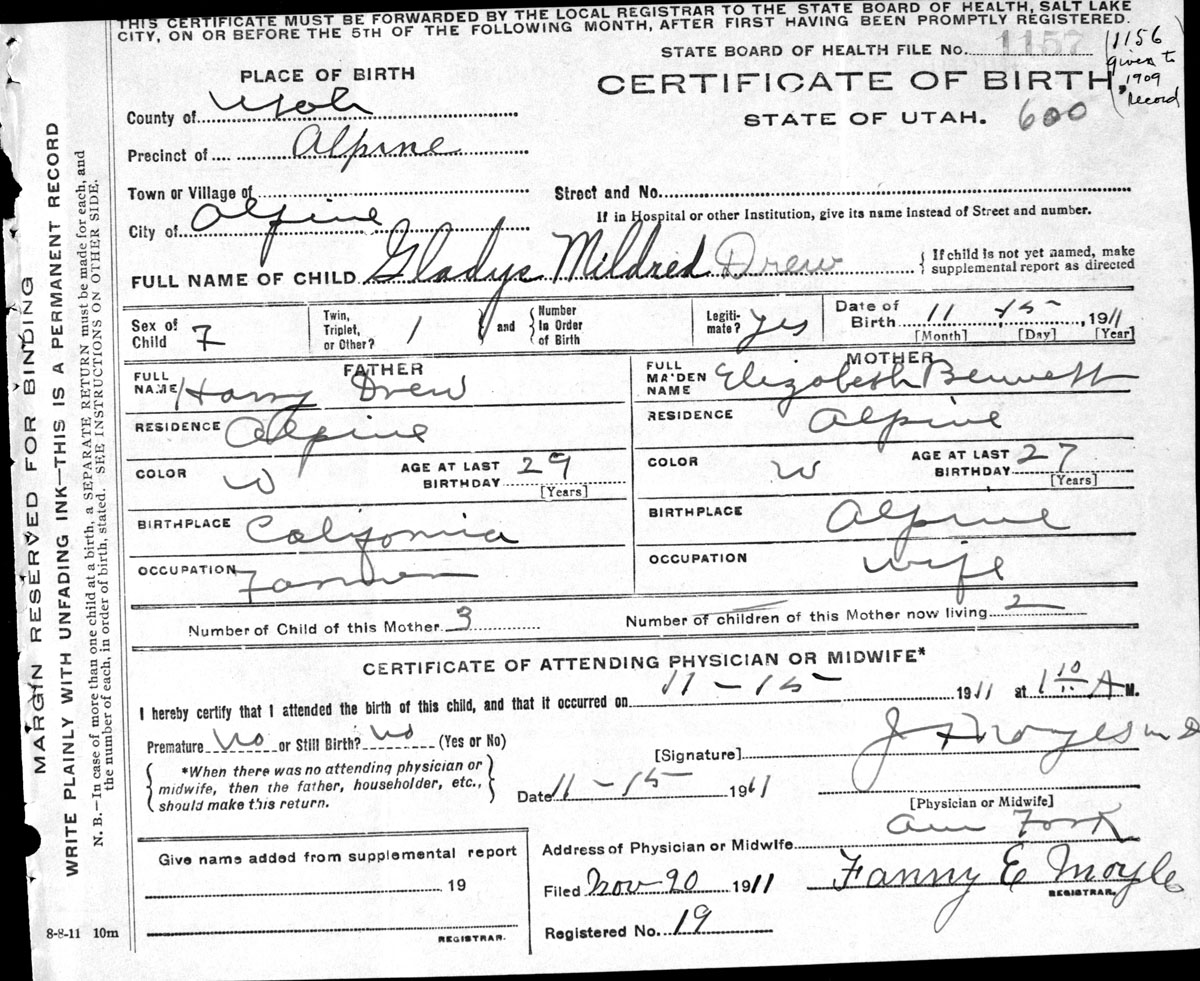 THIS CERTIFICATE MUST BE FORWARDED BY THE LOCAL REGISTRAR TO THE STATE BOARD OF HEALTH, SALT LAKE
CITY, ON OR BEFORE THE 5TH OF THE FOLLOWING MONTH, AFTER FIRST HAVING BEEN PROMPTLY REGISTERED.
STATE BOARD OF HEALTH FILE No. 1157
1156
given to
1909
record
PLACE OF BIRTH
CERTIFICATE OF BIRTH
County of Utah
STATE OF UTAH. 600
Precinct of Alpine
Town or Village of
Street and No.
City of Alpine
If in Hospital or other Institution, give its name instead of Street and number.
FULL NAME OF CHILD Gladys Mildred Drew { If child is not yet named, make
supplemental report as directed
Sex of Child F
Twin, Triplet, or Other? 1 } and { Number In Order of Birth
Legiti-mate? yes
Date of Birth 11 15, 1911
[Month] [Day] [Year]
FATHER
FULL NAME Harry Drew
RESIDENCE Alpine
COLOR W AGE AT LAST BIRTHDAY 29
[Years]
BIRTHPLACE California
OCCUPATION Farmer
MOTHER
FULL MAIDEN NAME Elizabeth Bennett
RESIDENCE Alpine
COLOR W AGE AT LAST BIRTHDAY 27
[Years]
BIRTHPLACE Alpine
OCCUPATION wife
Number of Child of this Mother 3 Number of children of this Mother now living 2
CERTIFICATE OF ATTENDING PHYSICIAN OR MIDWIFE*
I hereby certify that I attended the birth of this child, and that it occurred on 11-15- 1911 at 1 10 A M.
Premature No or Still Birth? No (Yes or No)
[Signature] J F Noyes MD
*When there was no attending physician or
midwife, then the father, householder, etc.,
should make this return.
Date 11-15- 1911
[Physician or Midwife]
Address of Physician or Midwife Am Fork
Give name added from supplemental report
19
REGISTRAR.
Filed Nov 20 1911 Fanny E Moyle
REGISTRAR.
Registered No. 19
8-8-11 10m
MARGIN RESERVED FOR BINDING
WRITE PLAINLY WITH UNFADING INK—THIS IS A PERMANENT RECORD
N. B.—In case of more than one child at a birth, a SEPARATE RETURN must be made for each, and
the number of each, in order of birth, stated. SEE INSTRUCTIONS ON OTHER SIDE.